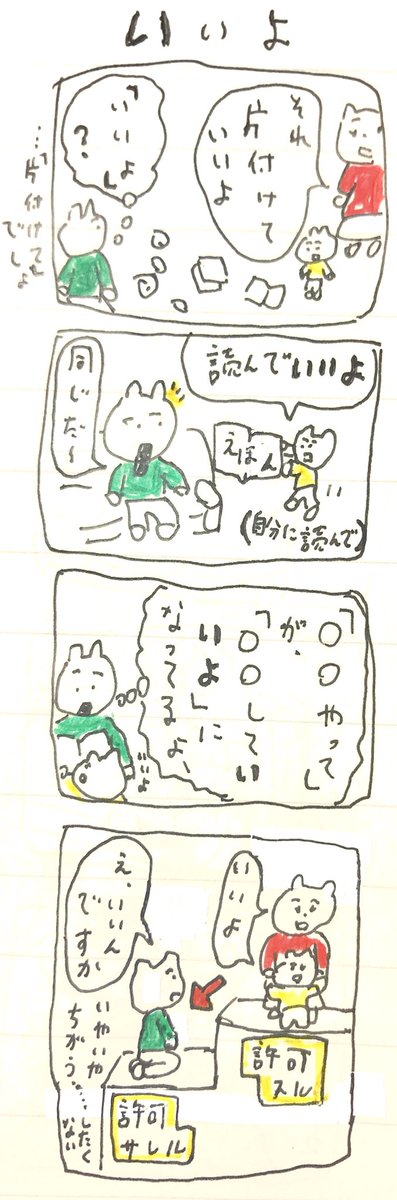 いいよ
それ
片付けて
いいよ
「いいよ」
?
…「片付けて」
でしょ
読んでいいよ
えほん
(自分に読んで)
同じだ〜
「〇〇やって」
が、
「〇〇してい
いよ」に
なってるよ、
いいよ
いいよ
え、いいん
ですか
許可
スル
許可
サレル
いやいや
ちがう……したく
ない